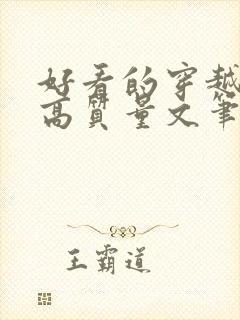 好看的穿越
高质量文笔
王霸道